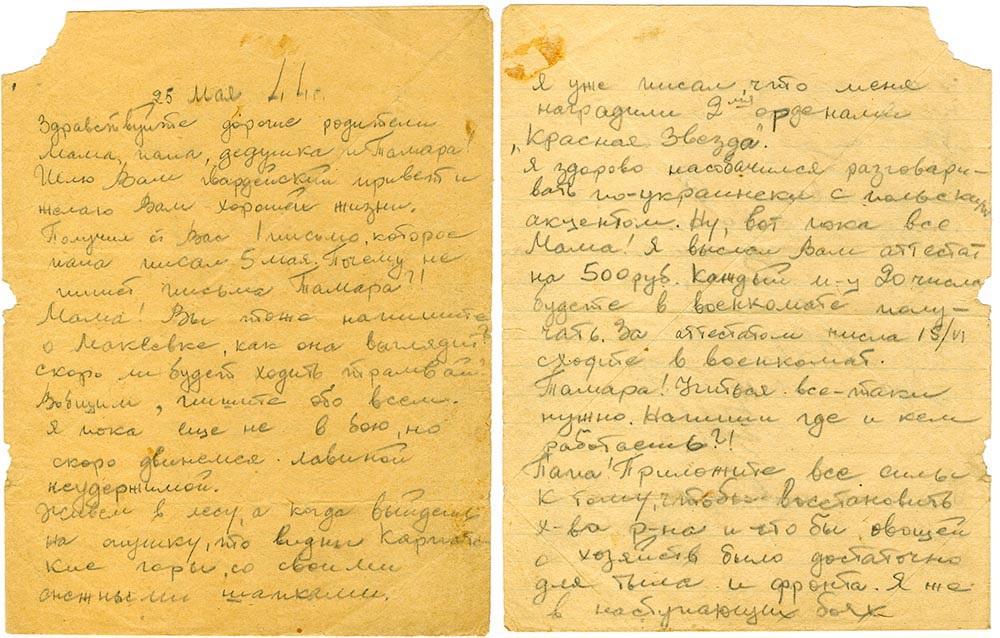 25 мая 44г.
Здравствуйте дорогие родители
Мама, папа, дедушка и Тамара!
Шлю Вам гвардейский привет и
желаю Вам хорошей жизни.
Получил от Вас 1 письмо, которое
папа писал 5 мая. Почему не
пишет письма Тамара?!
Мама! Вы тоже напишите
о Макеевке, как она выглядит?
скоро ли будет ходить трамвай?
Вобщим, пишите обо всем.
Я пока еще не в бою, но
скоро двинемся лавиной
неудержимой.
Живем в лесу, а когда выйдешь
на опушку, то видны Карпатс
кие горы, со своими
снежными шапками.
Я уже писал, что меня
наградили 2мя орденами
„Красная Звезда".
Я здорово насобачился разговари-
вать по-украински с польским
акцентом. Ну, вот пока все
Мама! Я выслал Вам аттестат
на 500 руб. Каждый м-ц 20 числа
будете в военкомате полу-
чать. За аттестатом числа 15/VI
сходите в военкомат.
Тамара! Учиться все-таки
нужно. Напиши где и кем
работаешь?!
Папа! Приложите все силы
к тому, чтобы восстановить
х-ва р-на и что бы овощей
о хозяйств было достаточно
для тыла и фронта. Я же
в наступающих боях